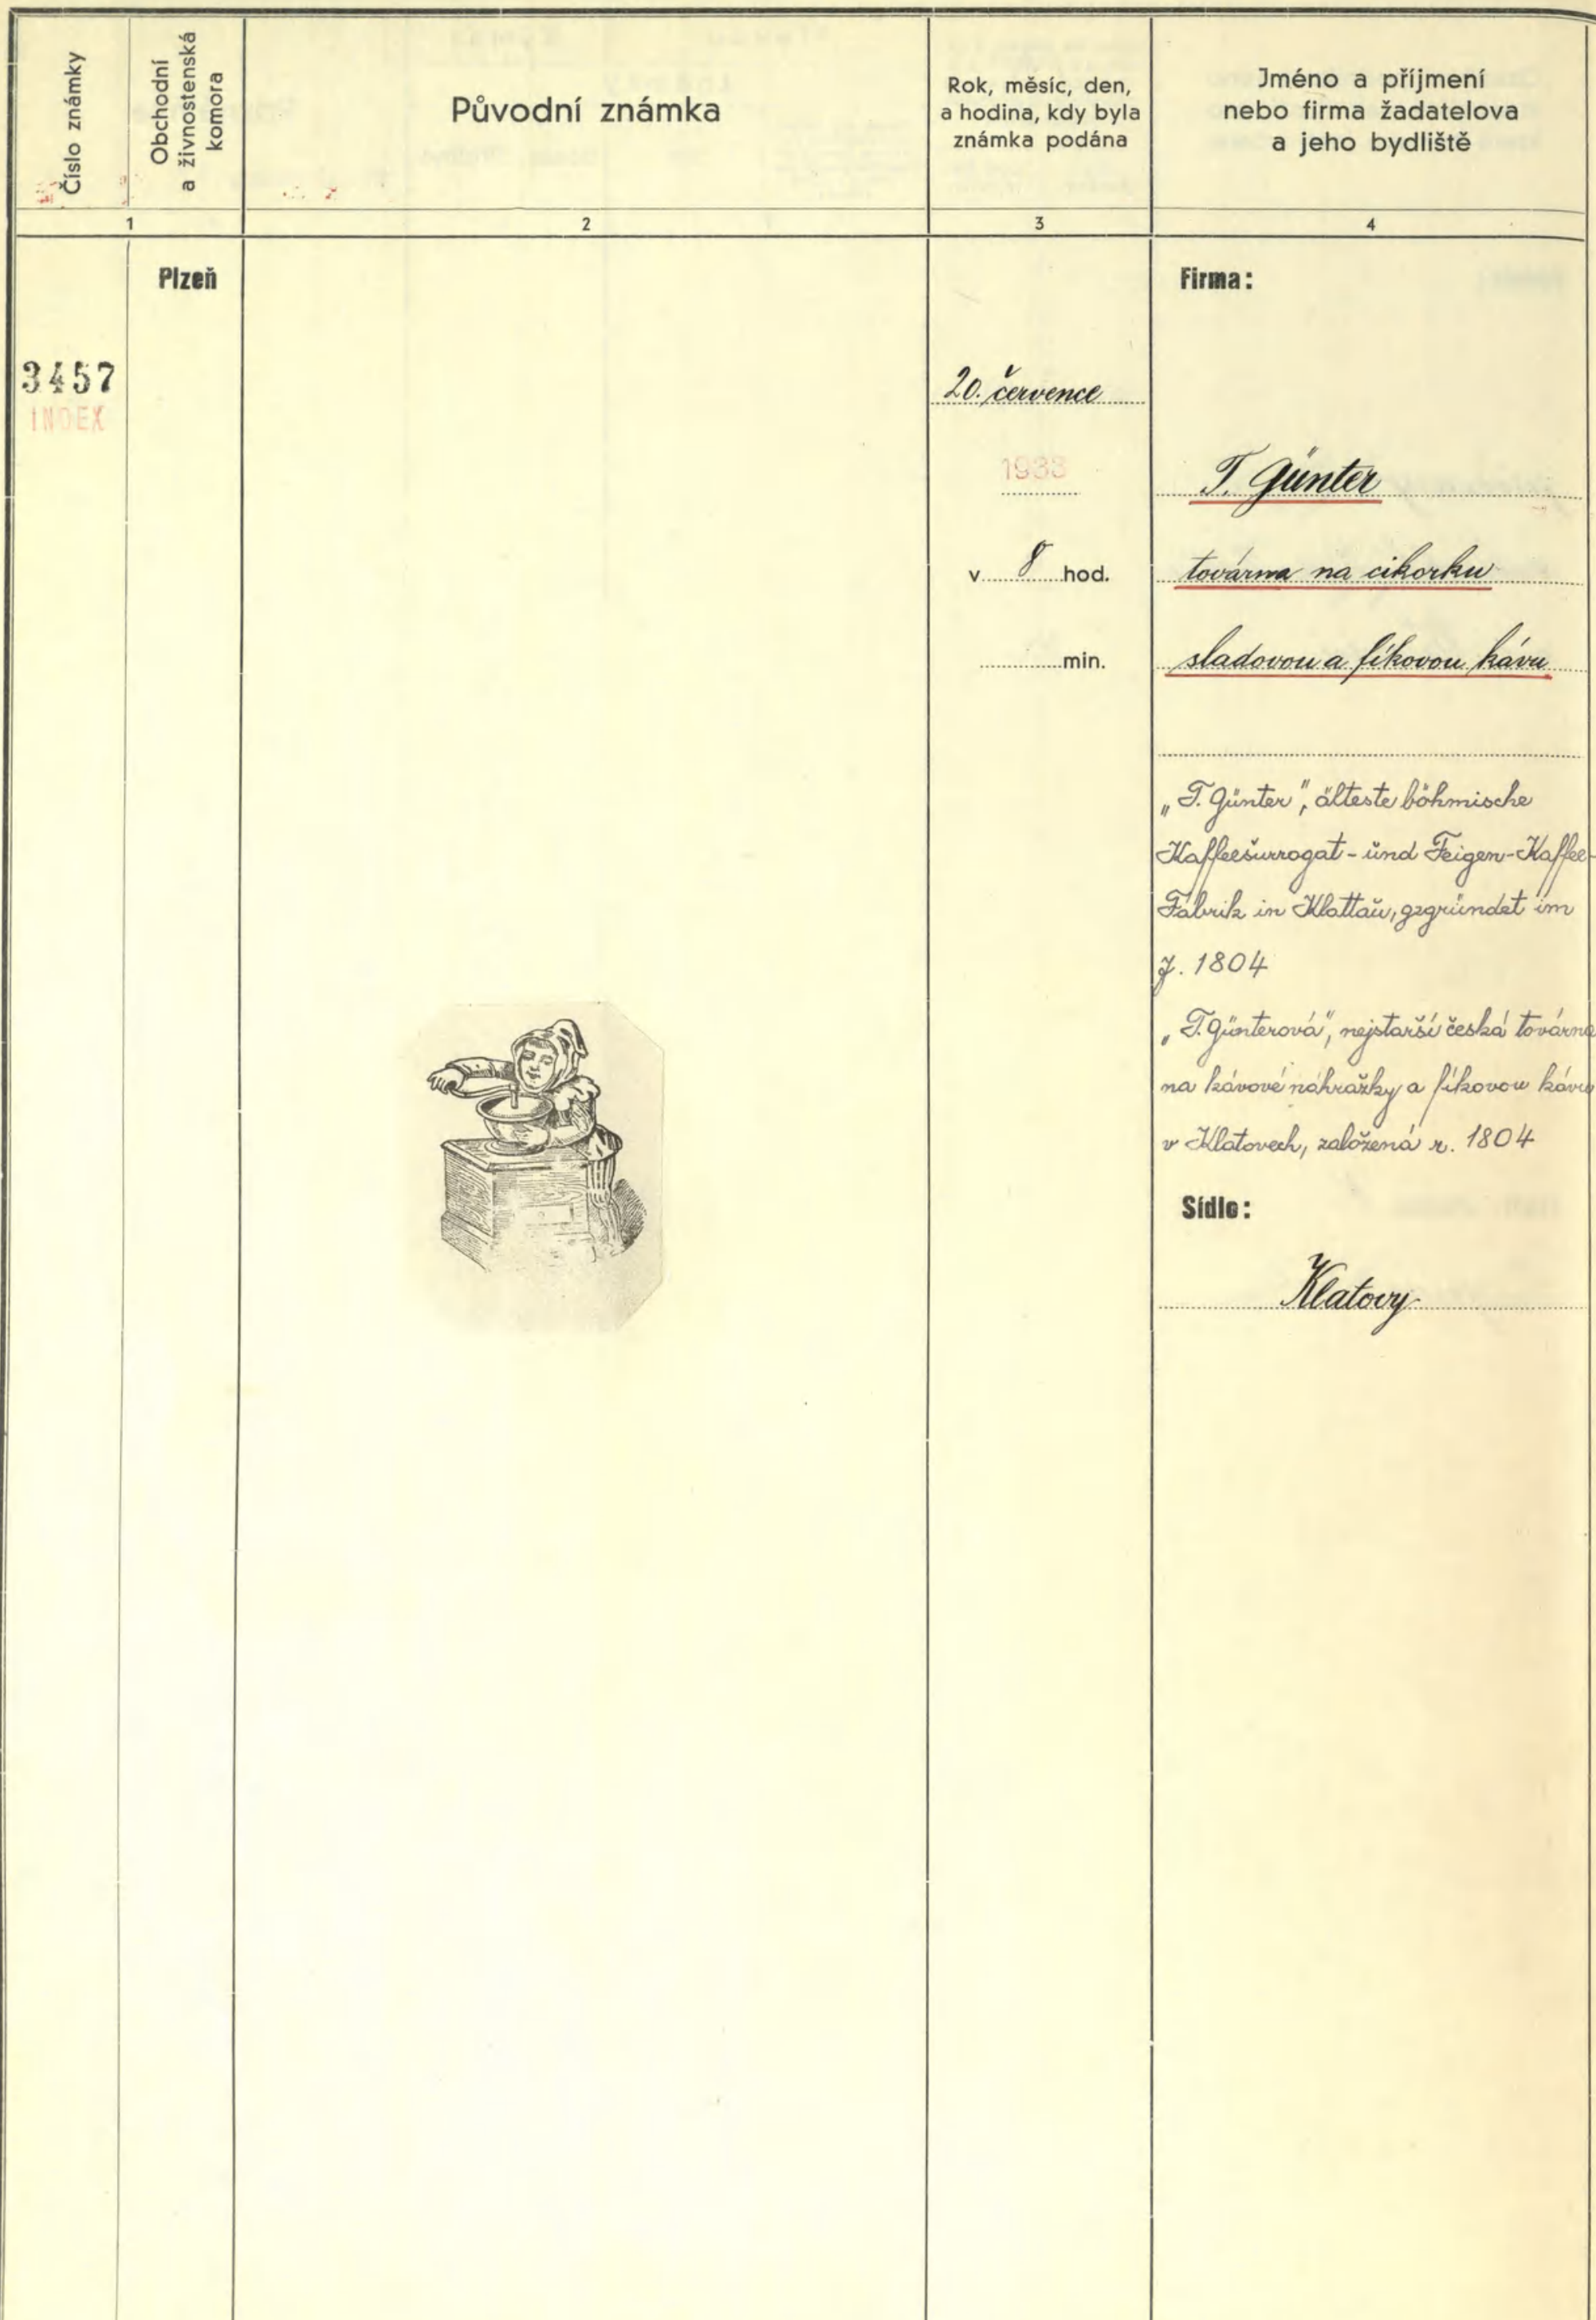 Číslo známky
Obchodní
a živnostenská
komora
Původní známka
Rok, měsíc, den,
a hodina, kdy byla
známka podána
Jméno a příjmení
nebo firma žadatelova
a jeho bydliště
1
2
3
4
Plzeň
Firma:
3457
INDEX
20. července
1933
T. Günter
v 8 hod.
továrna na cikorku
min.
sladovou a fíkovou kávu
„T. Günter", älteste böhmische
Kaffeešurrogat - ünd Feigen-Kaffee-
Fabrik in Klattaü, gegründet im
J. 1804
„T. Günterová", nejstarší česká továrna
na kávové náhražky a fíkovou kávu
v Klatovech, založená r. 1804
Sídlo:
Klatovy